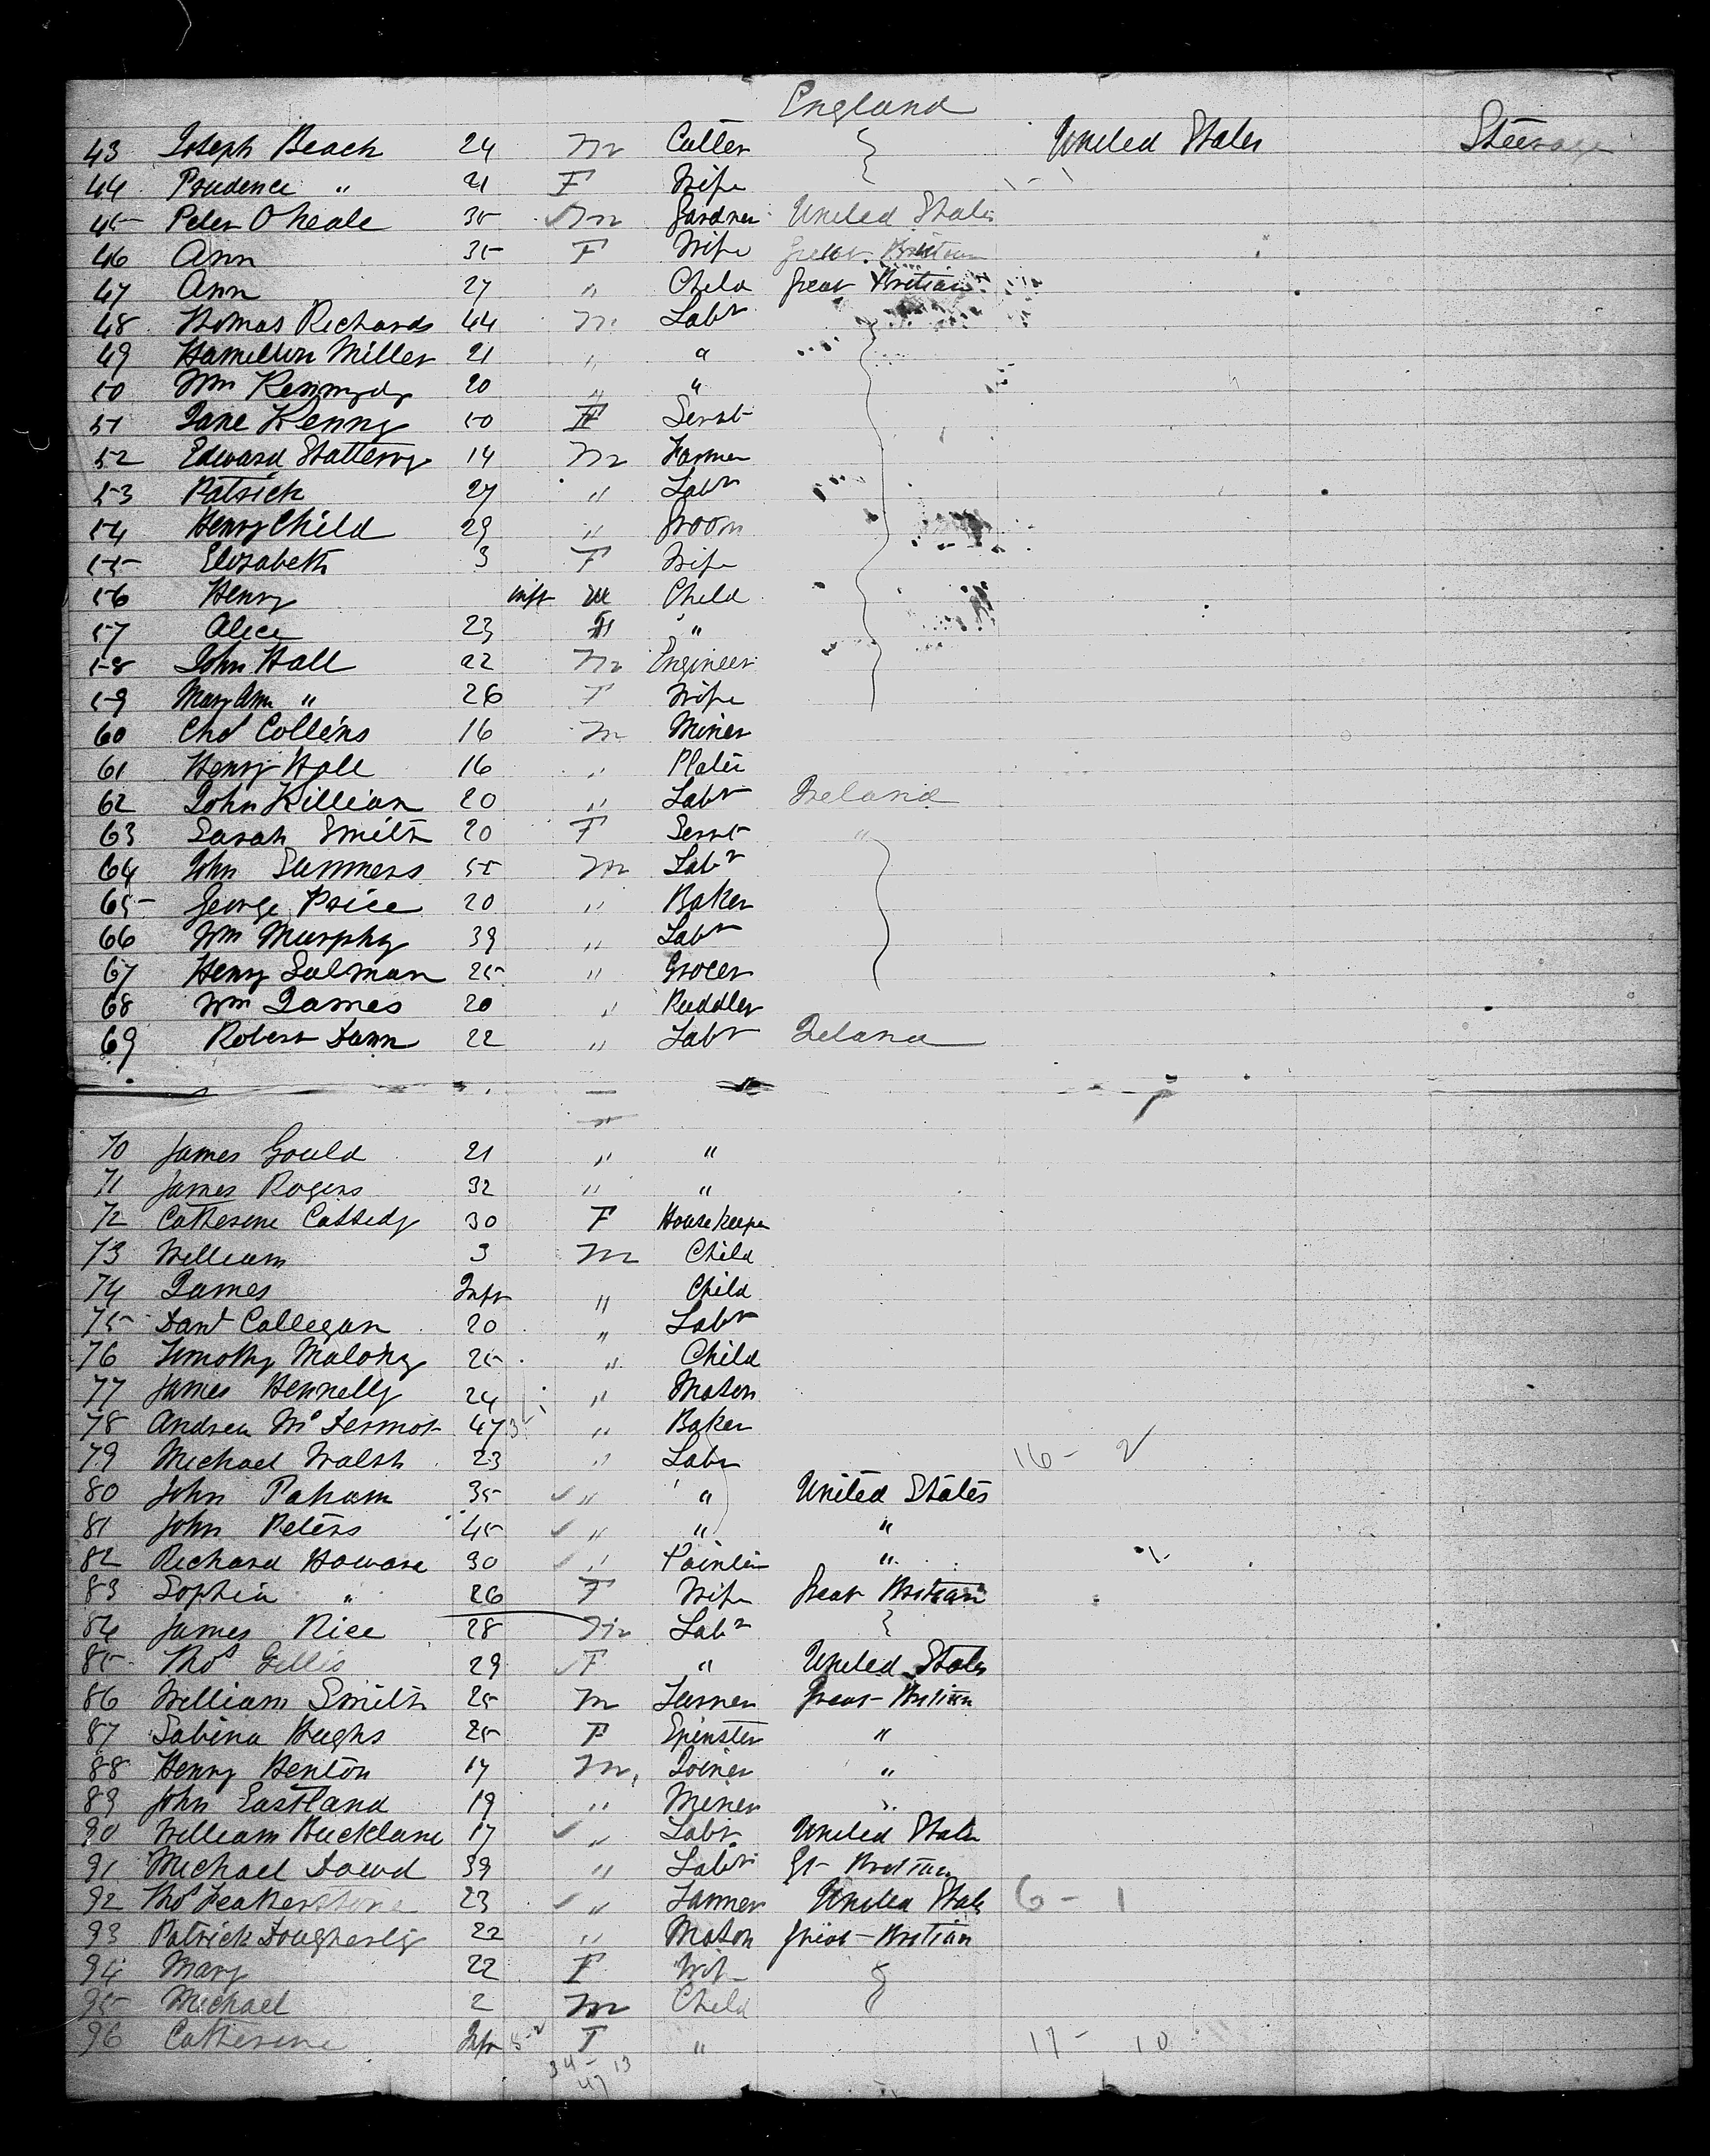 England
43 Joseph Beach 24 m Cutter } United States Steerage
44 Prudence " 21 F Wife
45 Peter O Neale 35 m Gardner United States
46 Ann 35 F Wife Great Britian
47 Ann 27 " Child Great Britian
48 Thomas Richards 44 m Labr
49 Hamilton Miller 21 " "
50 Wm Kennydy 20 " "
51 Jane Kenny 50 F Servt
52 Edward Slattery 14 m Farmer
53 Patrick 27 " Labr
54 Henry Child 29 " Groom
55 Elizabeth 3 F Wife
56 Henry inft m Child
57 Alice 23 F "
58 John Hall 22 m Engineer
59 Mary Ann " 26 F Wife
60 Chs Collins 16 m Miner
61 Henry Hall 16 " Plater
62 John Killian 20 " Labr Ireland
63 Sarah Smith 20 F Servt "
64 John Summers 55 m Labr
65 George Price 20 " Baker
66 Wm Murphy 39 " Labr
67 Henry Salman 25 " Grocer
68 Wm James 20 " Puddler
69 Robert Dunn 22 " Labr Ireland
70 James Gould 21 " "
71 James Rogers 32 " "
72 Catherine Cassedy 30 F Housekeeper
73 William 3 m Child
74 James Inft " Child
75 Danl Callegan 20 " Labr
76 Timothy Malony 25 " Child
77 James Hennelly 24 " Mason
78 Andrew McDermot 47 " Baker
79 Michael Walsh 23 " Labr 16 - 2
80 John Paham 35 " " United States
81 John Peters 45 " " "
82 Richard Howard 30 " Painter "
83 Sophia " 26 F Wife Great Britian
84 James Rice 28 m Labr
85 Thos Gillis 29 F " United States
86 William Smith 25 m Turner Great Britian
87 Sabina Hughs 25 F Spinster "
88 Henry Benton 17 m Joiner "
89 John Eastland 19 " Miner "
90 William Buckland 17 " Labr United States
91 Michael Dowd 39 " Labr Gt Britian
92 Thos Featherstone 23 " Farmer United States 6 - 1
93 Patrick Dougherty 22 " Mason Great Britian
94 Mary 22 F Wife
95 Michael 2 m Child
96 Catherine Inft F " 17 - 10
34 - 13
47